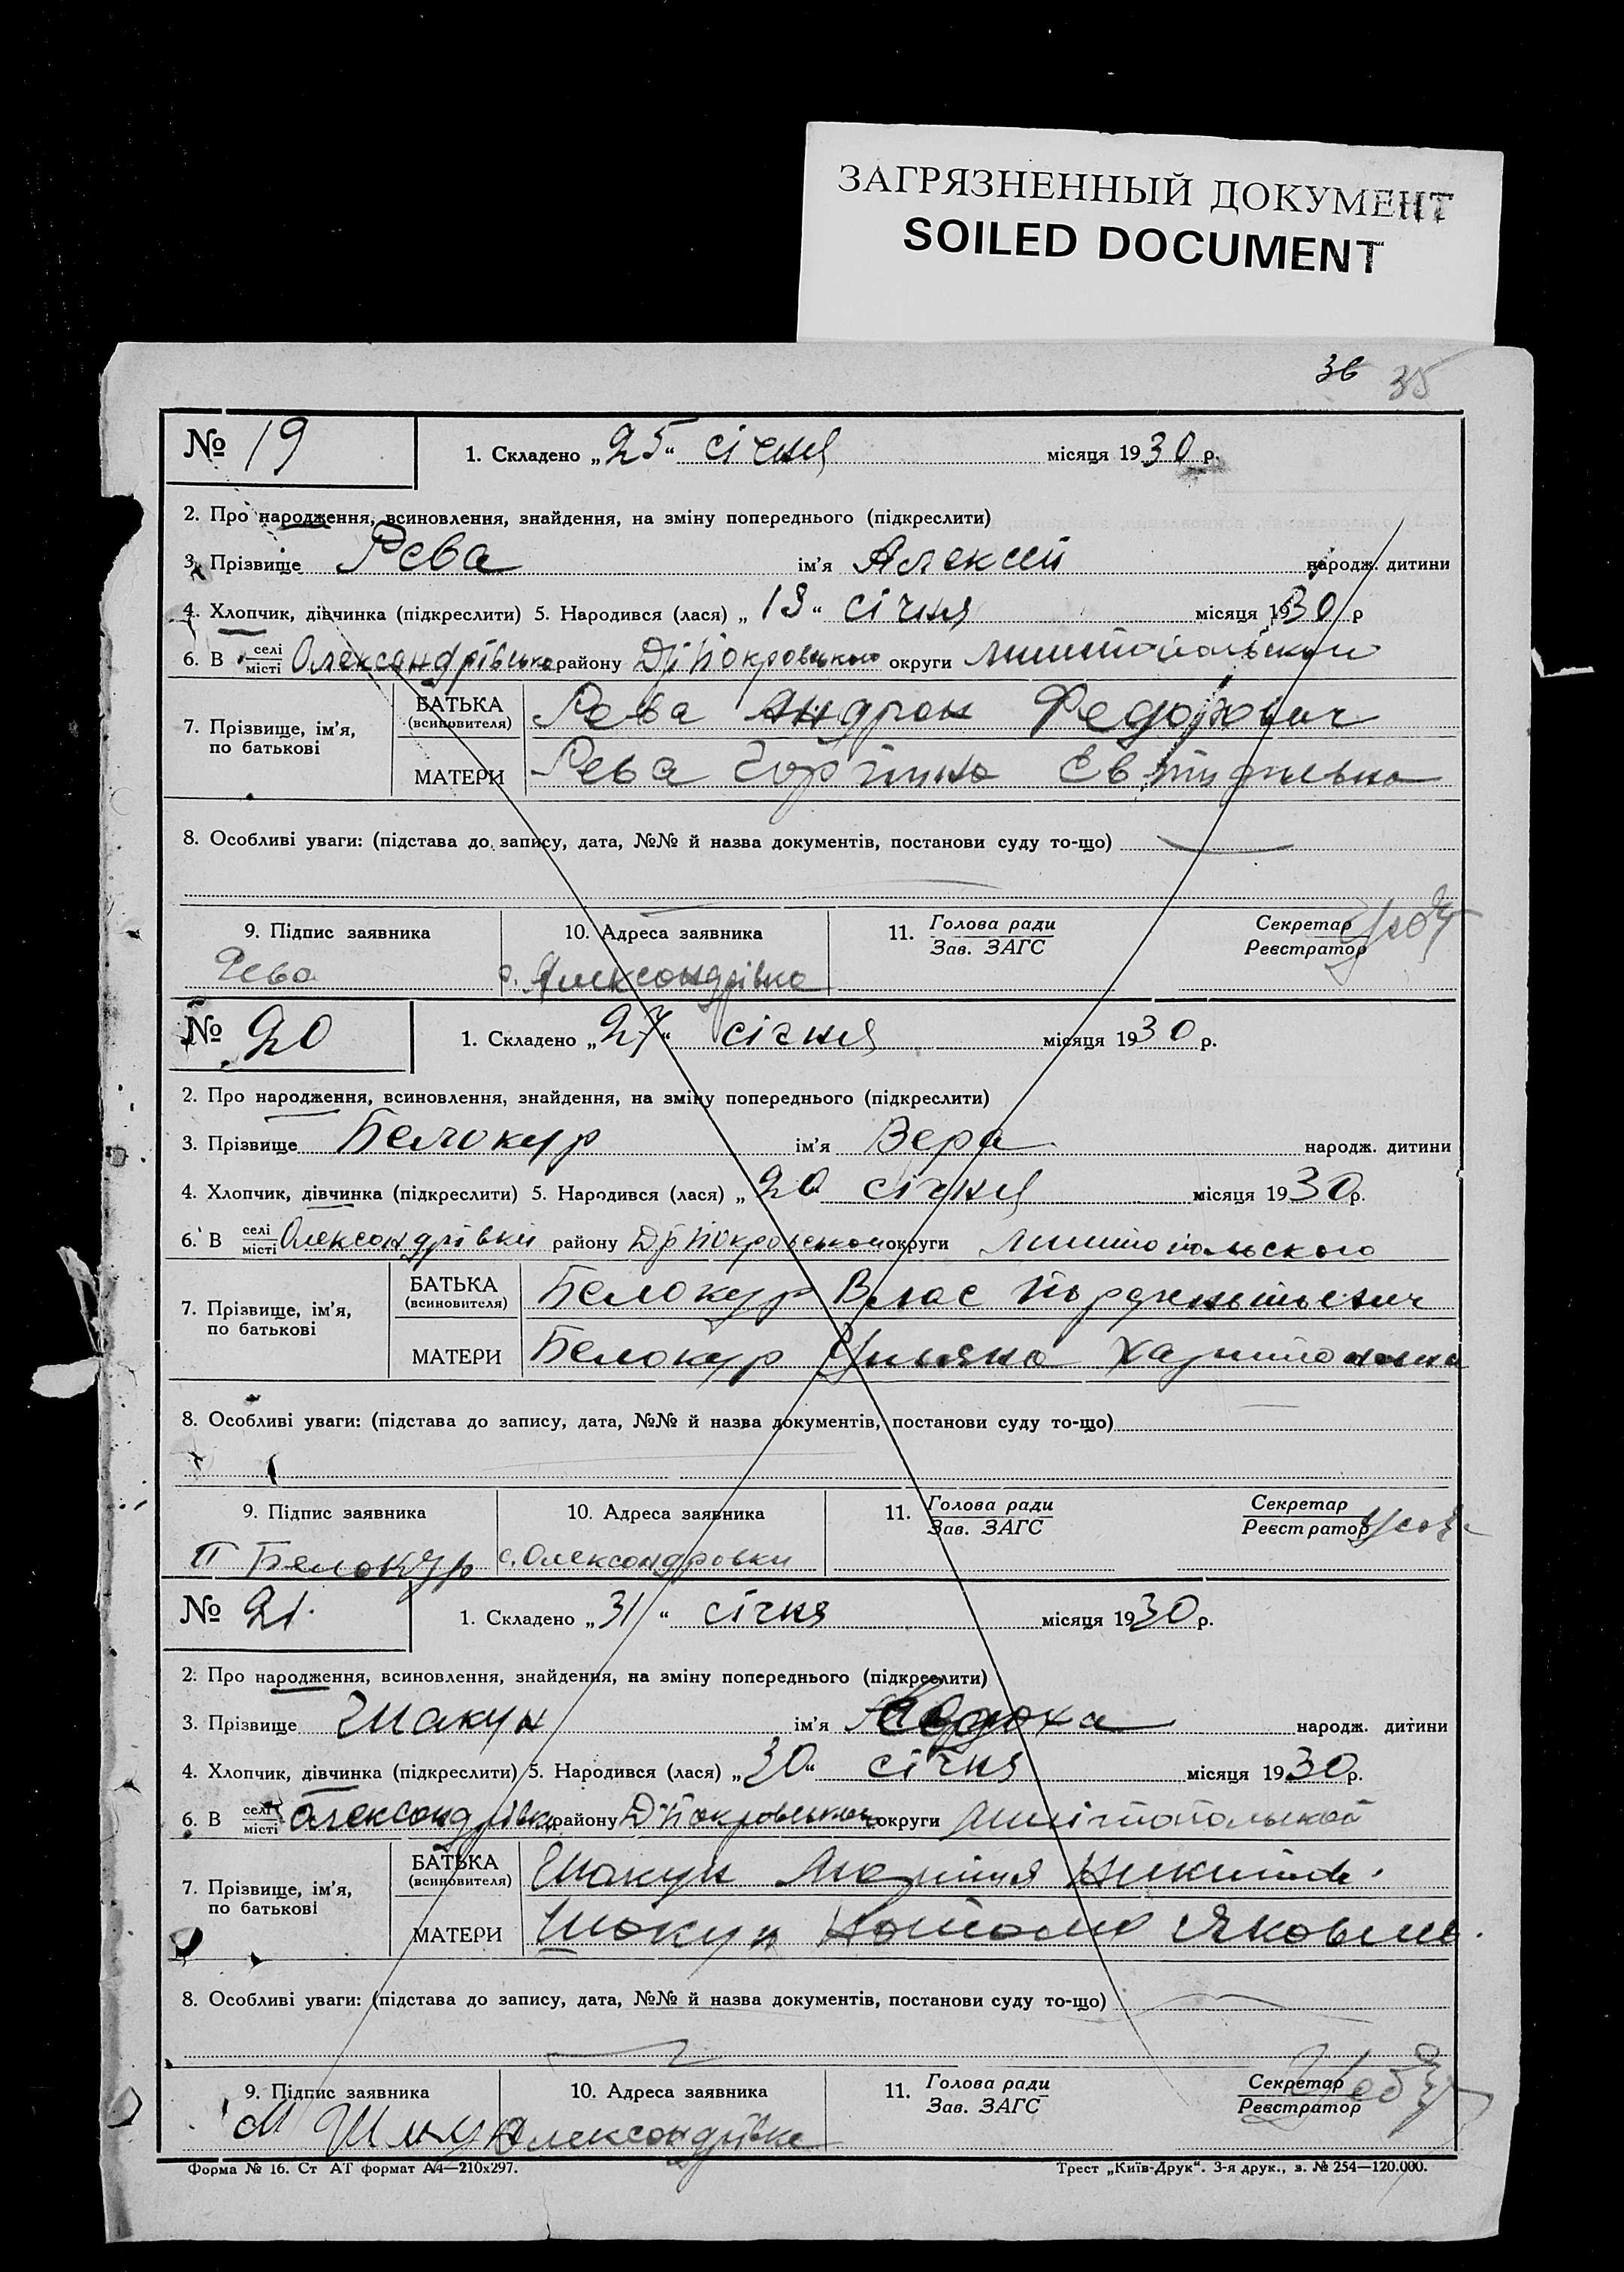 ЗАГРЯЗНЕННЫЙ ДОКУМЕНТ
SOILED DOCUMENT
36 35
№ 19 1. Складено „25“ січня місяця 1930 р.
2. Про народження, всиновлення, знайдення, на зміну попереднього (підкреслити)
3. Прізвище Рева ім'я Алексей народж. дитини
4. Хлопчик, дівчинка (підкреслити) 5. Народився (лася) „13“ січня місяця 1930 р
6. В селі місті району округи
7. Прізвище, ім'я, по батькові
БАТЬКА (всиновителя) Рева Андрон Федорович
МАТЕРИ Рева
8. Особливі уваги: (підстава до запису, дата, №№ й назва документів, постанови суду то-що)
9. Підпис заявника 10. Адреса заявника 11. Голова ради Зав. ЗАГС Секретар Реєстратор
Рева с. Александрівка
№ 20 1. Складено „27“ січня місяця 1930 р.
2. Про народження, всиновлення, знайдення, на зміну попереднього (підкреслити)
3. Прізвище Белокур ім'я Вера народж. дитини
4. Хлопчик, дівчинка (підкреслити) 5. Народився (лася) „20 січня місяця 1930 р.
6. В селі місті Олександрівки району округи
7. Прізвище, ім'я, по батькові
БАТЬКА (всиновителя) Белокур Влас
МАТЕРИ Белокур Ульяна Харитоновна
8. Особливі уваги: (підстава до запису, дата, №№ й назва документів, постанови суду то-що)
9. Підпис заявника 10. Адреса заявника 11. Голова ради Зав. ЗАГС Секретар Реєстратор
П Белокур с. Олександровки
№ 21. 1. Складено „31“ січня місяця 1930 р.
2. Про народження, всиновлення, знайдення, на зміну попереднього (підкреслити)
3. Прізвище Шакун ім'я народж. дитини
4. Хлопчик, дівчинка (підкреслити) 5. Народився (лася) „30“ січня місяця 1930 р.
6. В селі місті району округи
7. Прізвище, ім'я, по батькові
БАТЬКА (всиновителя) Шакун
МАТЕРИ Шакун
8. Особливі уваги: (підстава до запису, дата, №№ й назва документів, постанови суду то-що)
9. Підпис заявника 10. Адреса заявника 11. Голова ради Зав. ЗАГС Секретар Реєстратор
Олександрівка
Форма № 16. Ст АТ формат А4—210х297. Трест „Київ-Друк“. 3-я друк., з. № 254—120.000.